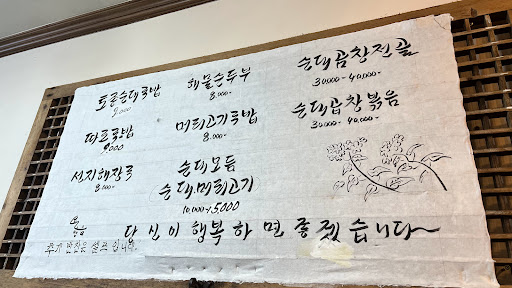 토종순대국밥
9,000
따로국밥
9,000
선지해장국
8,000-
해물순두부
8,000-
머리고기국밥
8,000-
순대모듬
순대,머리고기
10,000-15,000
순대곱창전골
30,000-40,000-
순대곱창볶음
30,000-40,000-
당신이 행복하면 좋겠습니다~
추가 반찬은 셀프입니다.